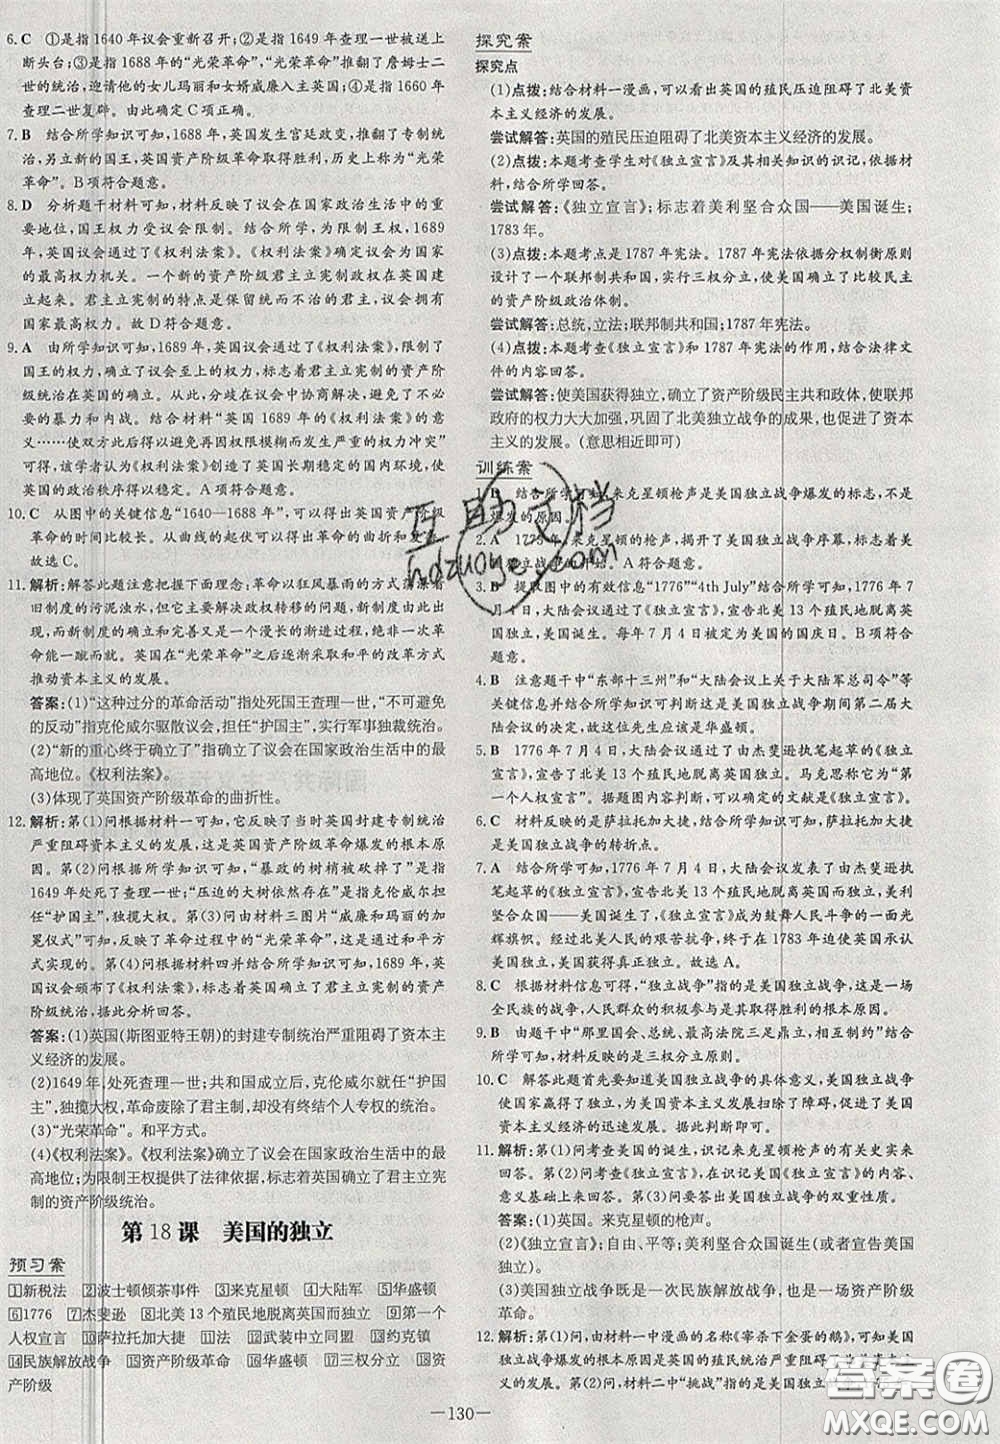 6. C　①是指 1640 年议会重新召开;②是指 1649 年查理一世被送上
断头台;③是指 1688 年的“光荣革命”,“光荣革命”推翻了詹姆士二
世的统治,迎请他的女儿玛丽和女婿威廉入主英国;④是指 1660 年
查理二世复辟。由此确定 C 项正确。
7. B　结合所学知识可知,1688 年,英国发生宫廷政变,推翻了专制统
治,另立新的国王,英国资产阶级革命取得胜利,历史上称为“光荣
革命”。B 项符合题意。
8. D　分析题干材料可知,材料反映了议会在国家政治生活中的重
要地位,国王权力受议会限制。结合所学,为限制王权,1689
年,英国议会通过了《权利法案》。《权利法案》确定议会为国家
的最高权力机关。一个新的资产阶级君主立宪制政权在英国建
立起来。君主立宪制的特点是保留统而不治的君主,议会拥有
国家最高权力。故 D 符合题意。
9. A　由所学知识可知,1689 年,英国议会通过了《权利法案》,限制了
国王的权力,确立了议会至上的原则,标志着君主立宪制的资产阶级
统治在英国的确立。从此,分歧在议会中协商解决,避免了不必
要的暴力和内战。结合材料“英国 1689 年的《权利法案》的意义
……使双方此后得以避免再因权限模糊而发生严重的权力冲突”
可得,该学者认为《权利法案》创造了英国长期稳定的国内环境,使英
国的政治秩序得以稳定。A 项符合题意。
10. C　从图中的关键信息“1640—1688 年”,可以得出英国资产阶级
革命的时间比较长。从曲线的起伏可以得出革命曲折和反复。
故选 C。
11. 解析:解答此题注意把握下面理念:革命以狂风暴雨的方式荡涤着
旧制度的污泥浊水,但它本身并没有解决政权转移的问题,新制度的
问题,新制度的确立和完善是一个漫长的渐进过程,绝非一次革
命能一蹴而就。英国在“光荣革命”之后逐渐采取和平的改革方式
推动资本主义的发展。
答案:(1)“这种过分的革命活动”指处死国王查理一世,“不可避免
的反动”指克伦威尔驱散议会,担任“护国主”,实行军事独裁统治。
(2)“新的重心终于确立了”指确立了议会在国家政治生活中的最
高地位。《权利法案》。
(3)体现了英国资产阶级革命的曲折性。
12. 解析:第(1)问根据材料一可知,它反映了当时英国封建专制统治
严重阻碍资本主义的发展,这是英国资产阶级革命爆发的根本原
因。第(2)问根据所学知识可知,“暴政的树梢被砍掉了”是指
1649 年处死了查理一世;“压迫的大树依然存在”是指克伦威尔担任
“护国主”,独揽大权。第(3)问由材料三图片“威廉和玛丽的加
冕仪式”可知,反映了革命过程中的“光荣革命”,这是通过和平方式
实现。第(4)问根据材料四并结合所学知识可知,1689 年,英国
议会颁布了《权利法案》,英国确立了君主立宪制的资产阶级
统治,据此分析回答。
答案:(1)英国(斯图亚特王朝)的封建专制统治严重阻碍了资本主
义经济的发展。
(2)1649 年,处死查理一世;共和国成立后,克伦威尔就任“护国
主”,独揽大权,革命废除了君主制,却没有终结个人专权的统治。
(3)“光荣革命”。和平方式。
(4)《权利法案》。《权利法案》确立了议会在国家政治生活中的最
高地位;为限制王权提供了法律依据,标志着英国确立了君主立宪
制的资产阶级统治。
第 18 课　美国的独立
预习案
①新税法　②波士顿倾茶事件　③来克星顿　④大陆军　⑤华盛顿
⑥1776　⑦杰斐逊　⑧北美 13 个殖民地脱离英国而独立　⑨第一个
人权宣言　⑩萨拉托加大捷　⑪法　⑫武装中立同盟　⑬约克镇
⑭民族解放战争　⑮资产阶级革命　⑯华盛顿　⑰三权分立　⑱资
产阶级
探究案
探究点
(1)点拨:结合材料一漫画,可以看出英国的殖民压迫阻碍了北美资
本主义经济的发展。
尝试解答:英国的殖民压迫阻碍了北美资本主义经济的发展。
(2)点拨:本题考查学生对《独立宣言》及其相关知识的识记,依据材
料,结合所学回答。
尝试解答:《独立宣言》;标志着美利坚合众国——美国诞生;
1783 年。
(3)点拨:本题考点是 1787 年宪法。1787 年宪法依据分权制衡原则
设计了一个联邦制共和国,实行三权分立,使美国确立了比较民主
的资产阶级政治体制。
尝试解答:总统,立法;联邦制共和国;1787 年宪法。
(4)点拨:本题考查《独立宣言》和 1787 年宪法的作用,结合法律文
件的内容回答。
尝试解答:使美国获得独立,确立了资产阶级民主共和政体,使联邦
政府的权力大大加强,巩固了北美独立战争的成果,也促进了资本
主义的发展。(意思相近即可)
训练案
1. B　结合所学可知,来克星顿枪声是美国独立战争爆发的标志,不是
爆发的原因。
2. A　1775 年,来克星顿的枪声,揭开了美国独立战争序幕,标志着美
国独立战争的开始。A 项符合题意。
3. B　提取图中的有效信息“1776”“4th July”结合所学可知,1776 年 7
月 4 日,大陆会议通过了《独立宣言》,宣告北美 13 个殖民地脱离英
国独立,美国诞生。每年 7 月 4 日被定为美国的国庆日。B 项符合
题意。
4. B　注意题干中“东部十三州”和“大陆会议上关于大陆军总司令”等
关键信息并结合所学知识可判断这是美国独立战争期间第二届大
陆会议的决定,故这位先生应该是华盛顿。
5. B　1776 年 7 月 4 日,大陆会议通过了由杰斐逊执笔起草的《独立
宣言》,宣告北美 13 个殖民地脱离英国独立。马克思称它为“第一
个人权宣言”。据图片内容判断,可以确定的文献是《独立宣言》。
6. C　材料反映的是萨拉托加大捷,结合所学知识可知,萨拉托加大捷
是美国独立战争的转折点。
7. A　结合所学可知,1776 年 7 月 4 日,大陆会议发表了由杰斐逊执
笔起草的《独立宣言》,宣告北美 13 个殖民地脱离英国而独立,美利
坚合众国——美国诞生了,《独立宣言》成为鼓舞人民斗争的一面光
辉旗帜。经过北美人民的艰苦抗争,终于在 1783 年迫使英国承认
美国独立,美国获得真正独立。故选 A。
8. C　根据材料信息可得,“独立战争”指的是美国独立战争,这是一场
全民族的战争,人民群众的积极参与是战争胜利的根本原因。
9. B　由题干中“那里国会、总统、最高法院三足鼎立,相互制约”结合
所学可知,材料反映的是三权分立原则。
10. C　解答此题首先要知道美国独立战争的具体意义,美国独立战争
使国家赢得了独立,为美国资本主义发展扫除了障碍,促进了美国
资本主义的迅速发展。据此判断即可。
11. 解析:第(1)问考查美国的诞生,识记来克星顿枪声的有关史实来
回答。第(2)问考查《独立宣言》,在识记美国《独立宣言》的内容、
意义基础上来回答。第(3)问考查美国独立战争的双重性质。
答案:(1)英国。来克星顿的枪声。
(2)《独立宣言》;自由、平等;美利坚合众国诞生(或宣告美国
独立)。
(3)美国独立战争既是一次民族解放战争,也是一场资产阶级
革命。
12. 解析:第(1)问,由材料一中漫画的名称《宰杀下金蛋的鹅》,可知美
国独立战争爆发的根本原因是英国的殖民统治严重阻碍了美国资
本主义的发展。第(2)问,由材料二中“挑战”指的是美国独立战争
—130—
互助文档
hdzuoye.com
答案圈
MXQE.COM